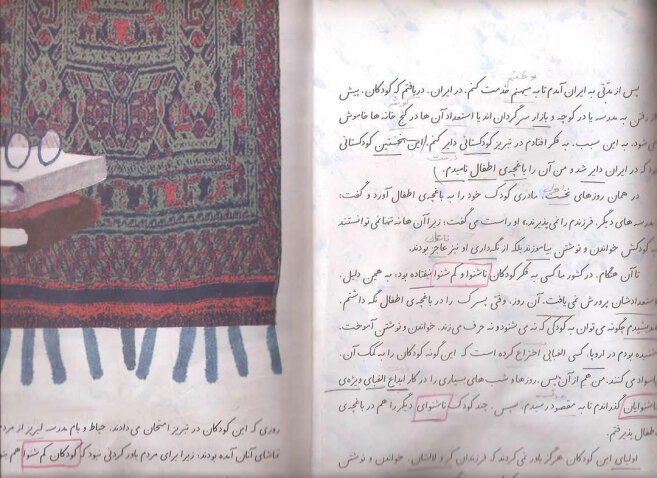 وطنم
پس از مدّتی به ایران آمدم تا به میهنم خدمت کنم. در ایران، دریافتم که کودکان، پیش
از رفتن به مدرسه یا در کوچه و بازار سرگردان اند یا استعداد آن ها در کنج خانه ها خاموش
می شود، به این سبب، به فکر افتادم در تبریز کودکستانی دایر کنم. این نخستین کودکستانی
بود که در ایران دایر شد و من آن را باغچه‌ی اطفال نامیدم.
در همان روزهای نخست، مادری کودک خود را به باغچه‌ی اطفال آورد و گفت:
مدرسه های دیگر، فرزندم را نمی پذیرند.» او راست می گفت؛ زیرا آن ها نه تنها نمی توانستند
به کودکش خواندن و نوشتن بیاموزند بلکه از نگهداری او نیز عاجز بودند.
تا آن هنگام، در کشور ما کسی به فکر کودکان ناشنوا و کم شنوا نیفتاده بود؛ به همین دلیل،
استعدادشان پرورش نمی یافت. آن روز، وقتی پسرک را در باغچه‌ی اطفال نگه داشتم،
اندیشیدم چگونه می توان به کودکی که نه می شنود و نه حرف می زند، خواندن و نوشتن آموخت.
شنیده بودم در اروپا، کسی الفبایی اختراع کرده است که این گونه کودکان را به کمک آن،
باسواد می کنند. من هم از آن پس، روزها و شب های بسیاری را در کار ابداع الفبای ویژه‌ی
ناشنوایان گذراندم تا به مقصود رسیدم. سپس، چند کودک ناشنوای دیگر را هم در باغچه‌ی
اطفال پذیرفتم.
اولیای این کودکان هرگز باور نمی کردند که فرزندان کر و لالشان، خواندن و نوشتن
روزی که این کودکان در تبریز امتحان می دادند، حیاط و بام مدرسه لبریز از مردم
تماشای آنان آمده بودند؛ زیرا برای مردم باور کردنی نبود که کودکان کم شنوا هم